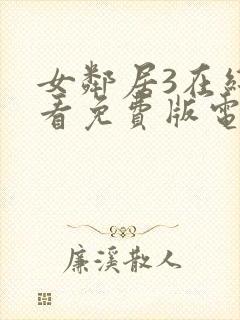 女鄰居3在線
看免費版電
廉溪散人